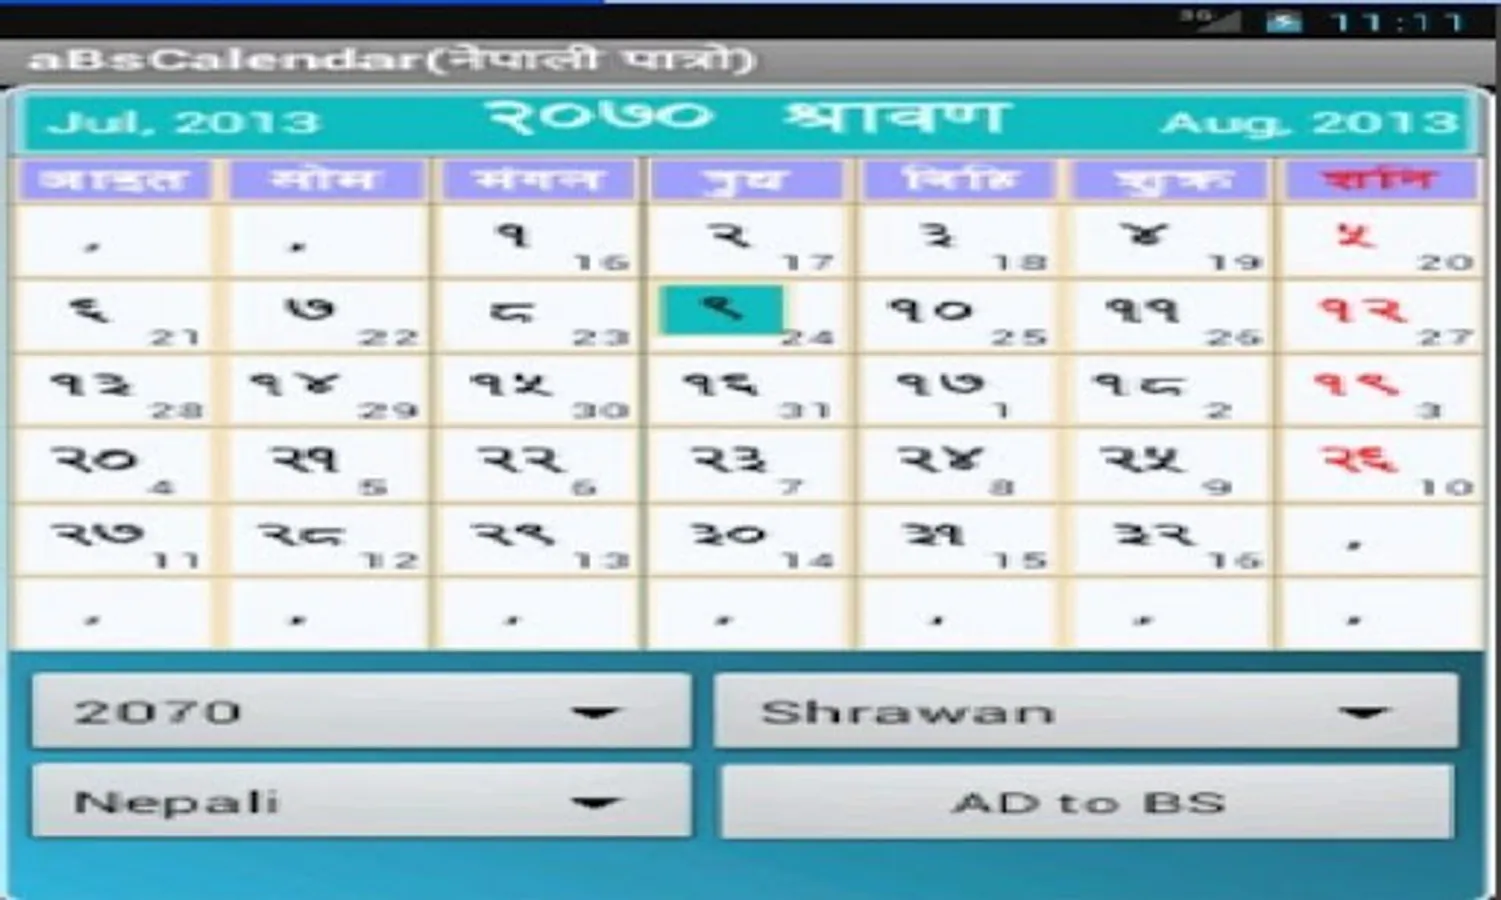 3G 11:11
aBsCalendar(नेपाली पात्रो)
Jul, 2013 २०७० श्रावण Aug, 2013
आइत सोम मंगल बुध बिहि शुक्र शनि
, , १ २ ३ ४ ५
16 17 18 19 20
६ ७ ८ ९ १० ११ १२
21 22 23 24 25 26 27
१३ १४ १५ १६ १७ १८ १९
28 29 30 31 1 2 3
२० २१ २२ २३ २४ २५ २६
4 5 6 7 8 9 10
२७ २८ २९ ३० ३१ ३२ ,
11 12 13 14 15 16
, , , , , , ,
2070 Shrawan
Nepali AD to BS